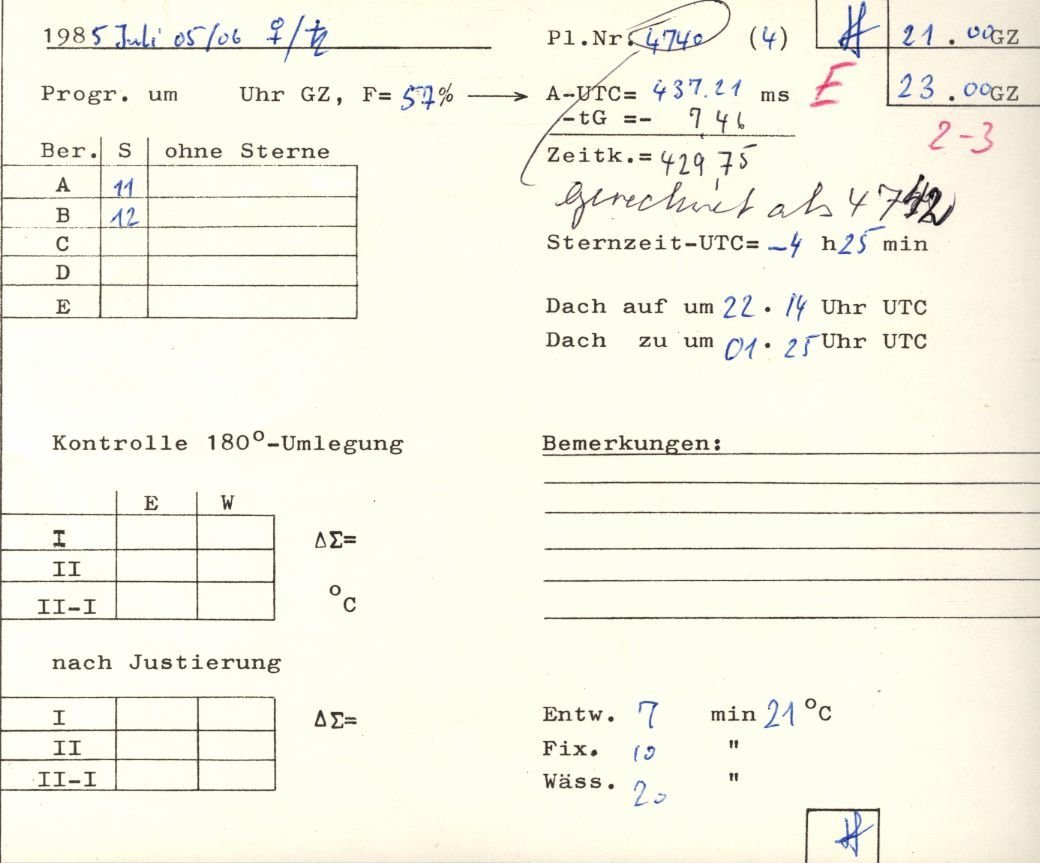 1985 Juli 05/06 ♀/♄ Pl.Nr. 4740 (4) 21.00 GZ
Progr. um Uhr GZ, F= 57% → A-UTC= 437.21 ms E 23.00 GZ
-tG =- 7,46
2-3
Ber. S ohne Sterne Zeitk.= 429,75
A 11
gerechnet als 4742
B 12
C Sternzeit-UTC= -4 h 25 min
D
E Dach auf um 22.14 Uhr UTC
Dach zu um 01.25 Uhr UTC
Kontrolle 180°-Umlegung Bemerkungen:
E W
I ΔΣ=
II
II-I °C
nach Justierung
I ΔΣ= Entw. 7 min 21 °C
II Fix. 10 "
II-I Wäss. 20 "